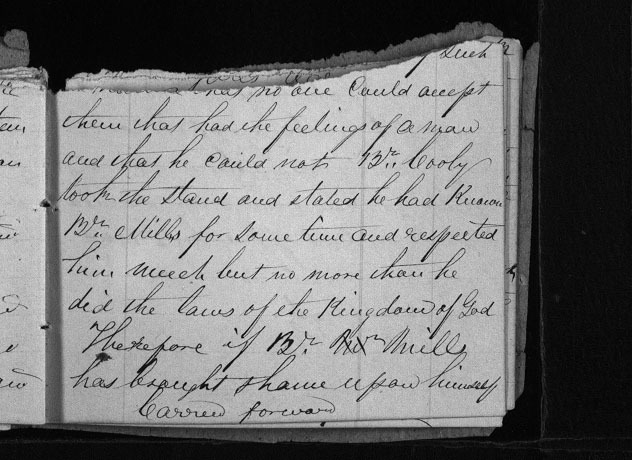 such
no one could accept
them that had the feelings of a man
and that he could not Br. Cooly
took the stand and stated he had known
Br. Mills for some time and respected
him much but no more than he
did the laws of the Kingdom of God
Therefore if Br. Mills
has brought shame upon himself
Carried forward